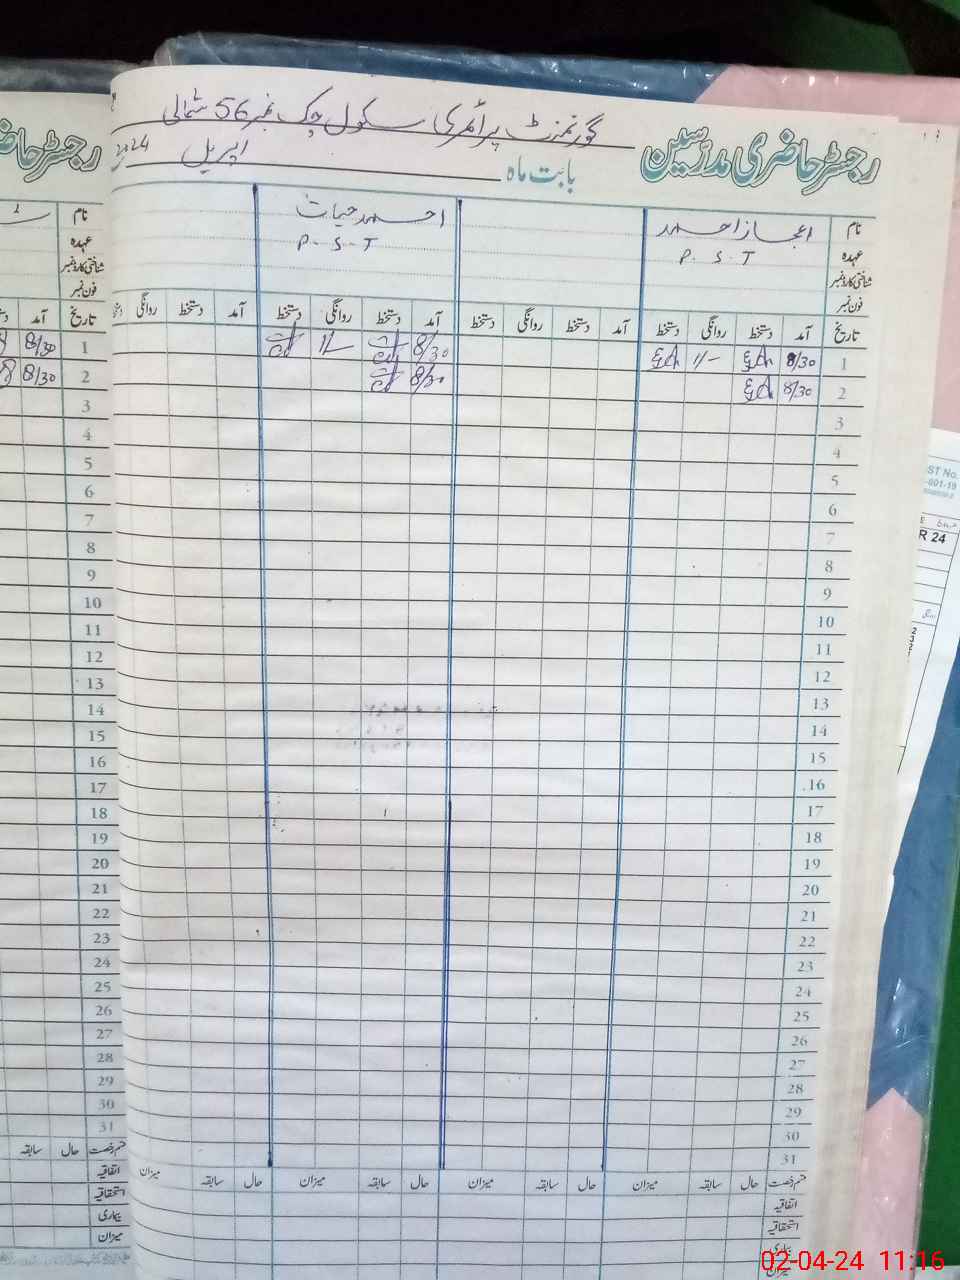 رجسٹر حاضری مدرسین گورنمنٹ پرائمری سکول چک نمبر 56 شمالی
بابت ماہ اپریل 2024
نام اعجاز احمد احمد حیات
عہدہ P.S.T P.S.T
شناختی کارڈ نمبر
فون نمبر
تاریخ آمد دستخط روانگی دستخط آمد دستخط روانگی دستخط آمد دستخط روانگی دستخط آمد دستخط روانگی
1 8/30 11/- 8/30 11/-
2 8/30 8/30
3
4
5
6
7
8
9
10
11
12
13
14
15
16
17
18
19
20
21
22
23
24
25
26
27
28
29
30
31
قسم رخصت حال سابقہ میزان حال سابقہ میزان حال سابقہ میزان حال سابقہ میزان
اتفاقیہ
استحقاقیہ
بیماری
میزان
رجسٹر حاضری
نام
عہدہ
شناختی کارڈ نمبر
فون نمبر
تاریخ آمد
1 8/30
2 8/30
3
4
5
6
7
8
9
10
11
12
13
14
15
16
17
18
19
20
21
22
23
24
25
26
27
28
29
30
31
قسم رخصت حال سابقہ
اتفاقیہ
استحقاقیہ
بیماری
میزان
ST No.
-001-19
R 24
02-04-24 11:16